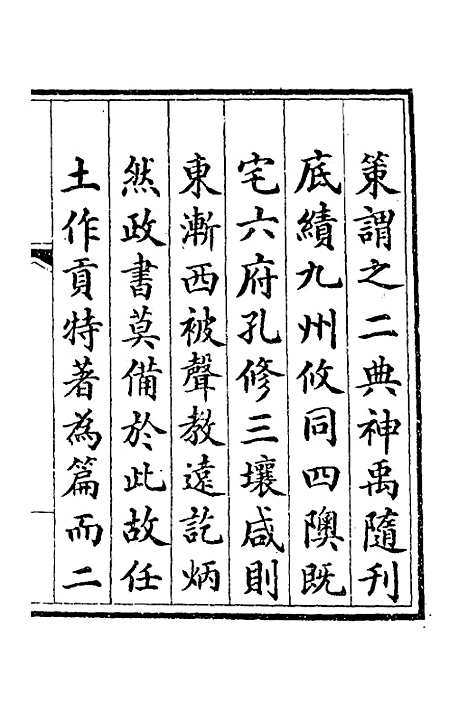 策謂之二典神禹隨刊
底績九州攸同四隩既
宅六府孔修三壤咸則
東漸西被聲教遠訖炳
然政書莫備於此故任
土作貢特著為篇而二